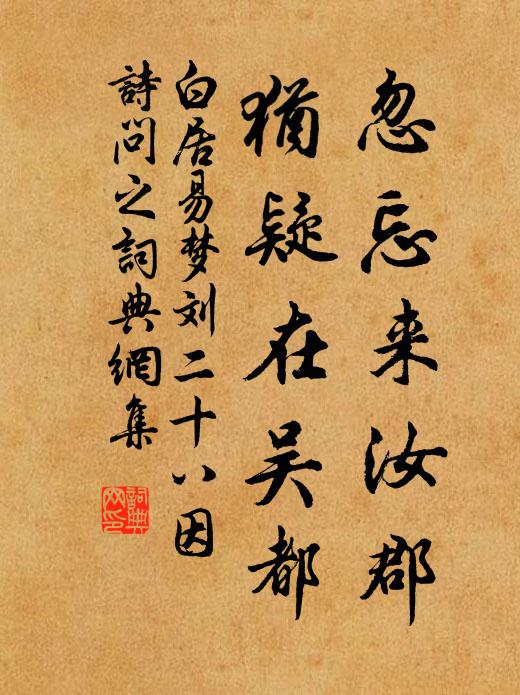 忽忘来汝郡
犹疑在吴都
白居易梦刘二十八因
詩问之詞典網集
詞典网印